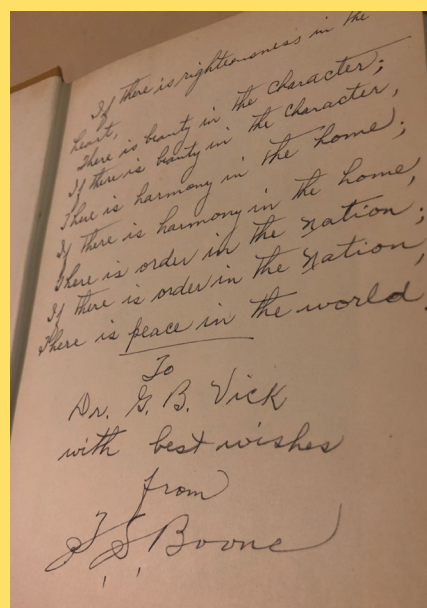 If there is righteousness in the
heart,
There is beauty in the character;
If there is beauty in the character,
There is harmony in the home;
If there is harmony in the home,
There is order in the nation;
If there is order in the Nation,
There is peace in the world.
To
Dr. G. B. Vick
with best wishes
from
T S Boone